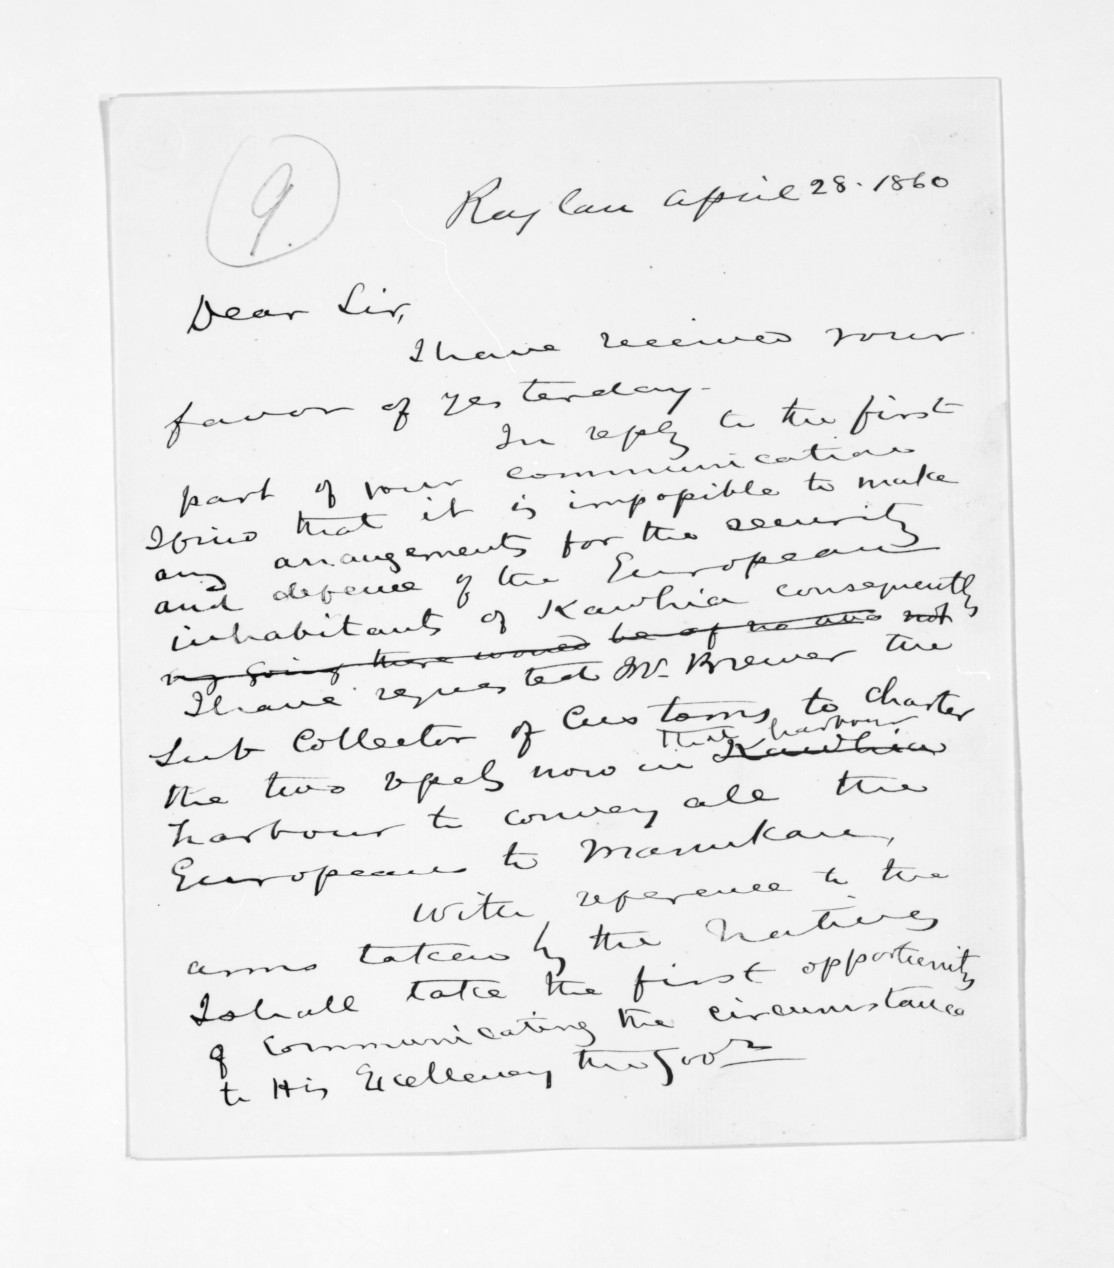 9.
Raglan April 28. 1860
Dear Sir,
I have received your
favor of yesterday.-
In reply to the first
part of your communication
I find that it is impossible to make
any arrangements for the security
and defence of the European
inhabitants of Kawhia consequently
my going there would be of no use not
I have requested Mr. Brewer the
Sub Collector of Customs to charter
that harbour
the two vessels now in Kawhia
harbour to convey all the
Europeans to Manukau,
With reference to the
arms taken by the Natives
I shall take the first opportunity
of communicating the circumstance
to His Excellency the Govr